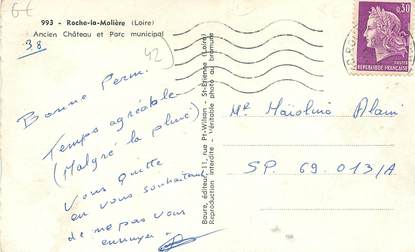 6€
993 - Roche-la-Molière (Loire)
Ancien Château et Parc municipal
38
42
Bonne Perm.
Temps agréable
(Malgré la pluie)
Vous quitte
en vous souhaitant
de ne pas vous
ennuyer
Boure, éditeur, 11, rue Pt-Wilson - St-Etienne (Loire)
Reproduction interdite - Véritable photo au bromure
0,30
POSTES
REPUBLIQUE FRANÇAISE
Mr Maïolino Alain
SP. 69.013/A